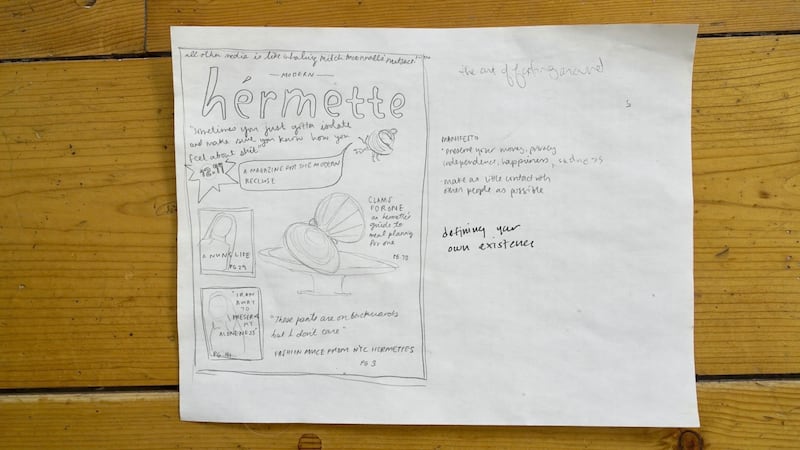 all other media is like inhaling Mitch McConnell's
— MODERN —
hérmette
"Sometimes you just gotta isolate
and make sure you know how you
feel about shit"
A MAGAZINE FOR THE MODERN
RECLUSE
CLAMS
FOR ONE
a hermette's
guide to
meal planning
for one
PG. 70
A NUN'S LIFE
PG 29
"I RAN
AWAY
TO
PRESERVE
MY
ALONENESS"
"These pants are on backwards
but I don't care"
FASHION ADVICE FROM NYC HERMETTES
PG 3
the art of farting around
s
MANIFESTO
preserve your money, privacy
independence, happiness,
make as little contact with
other people as possible
defining your
own existence